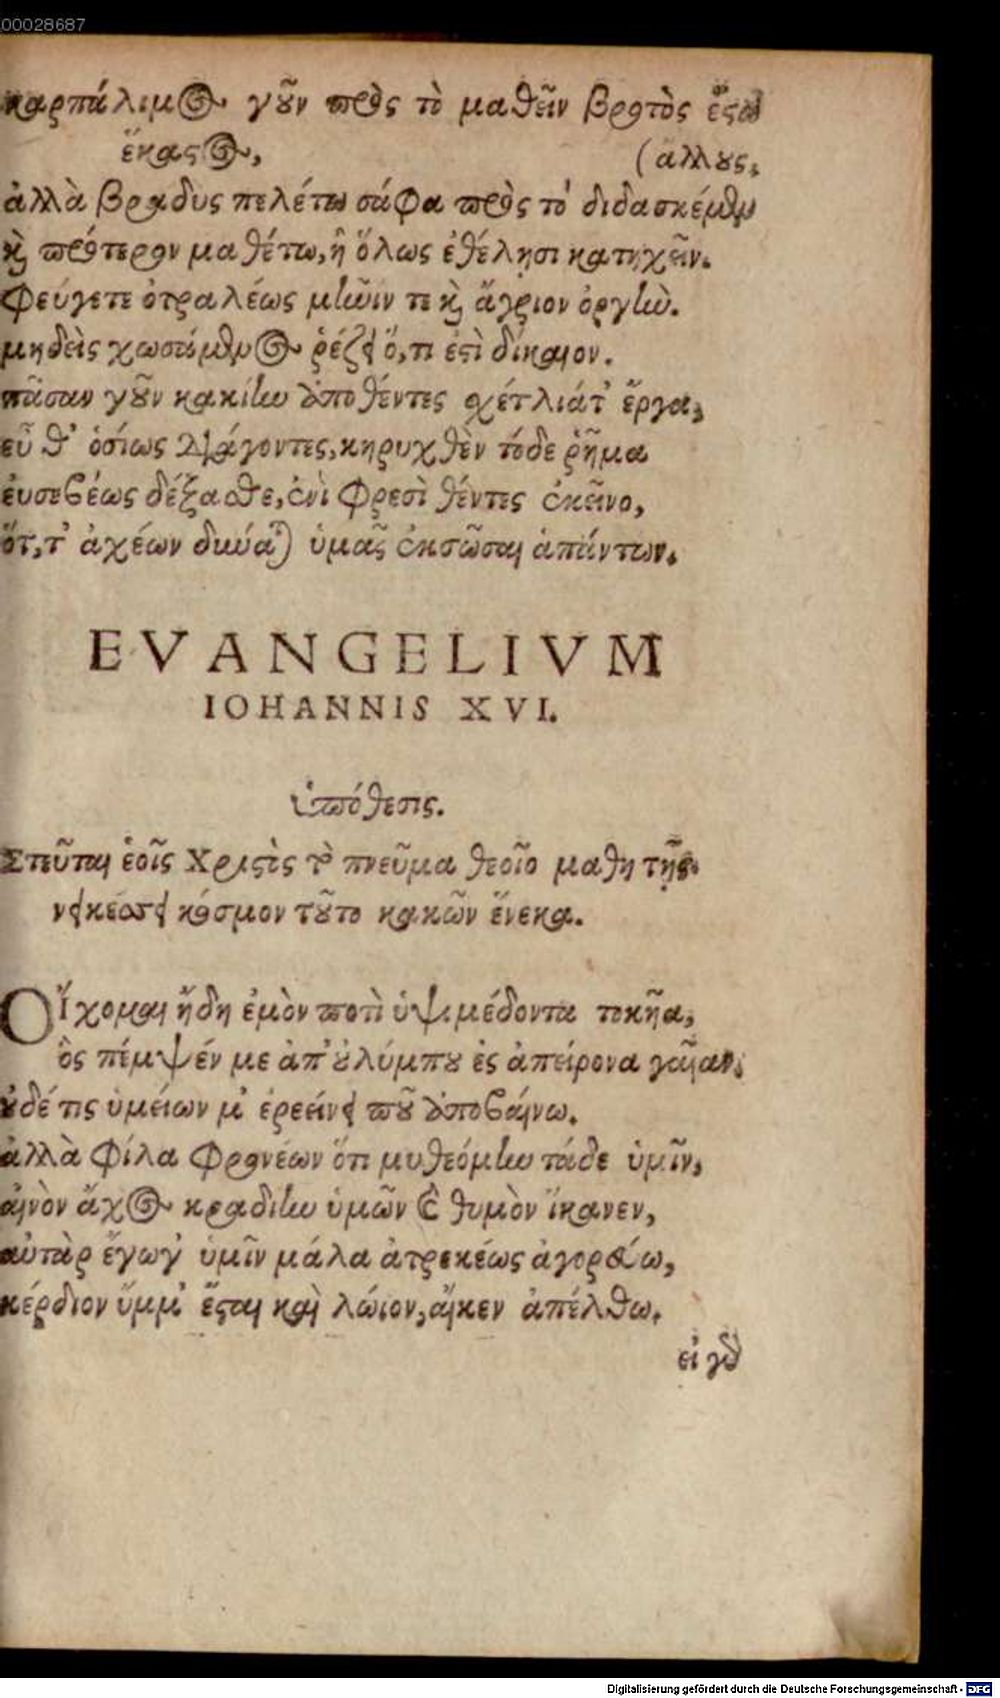 00028687
καρπάλιμος γοῦν πρὸς τὸ μαθεῖν βροτὸς ἔστω
ἕκαστος,
(ἄλλους,
ἀλλὰ βραδὺς πελέτω σάφα πρὸς τὸ διδασκέμεν
καὶ πρότερον μαθέτω, ἢ ὅλως ἐθέλῃσι κατηχεῖν.
Φεύγετε ὀτραλέως μῆνίν τε καὶ ἄγριον ὀργήν.
μηδεὶς χωσάμενος ῥέζει ὅ,τι ἐστὶ δίκαιον.
πᾶσαν γοῦν κακίην ἀποθέντες σχέτλιάτ' ἔργα,
εὖ θ' ὁσίως διάγοντες, κηρυχθὲν τόδε ῥῆμα
ἐυσεβέως δέξασθε, ἐνὶ φρεσὶ θέντες ἐκεῖνο,
ὅτ,τ' ἀχέων δύναται ὑμᾶς ἐκσῶσαι ἁπάντων.
EVANGELIVM
IOHANNIS XVI.
ὑπόθεσις.
Στεῦται ἑοῖς Χριστὸς τὸ πνεῦμα θεοῖο μαθηταῖς
νεικέσει κόσμον τοῦτο κακῶν ἕνεκα.
Οἴχομαι ἤδη ἐμὸν ποτὶ ὑψιμέδοντα τοκῆα,
ὃς πέμψέν με ἀπ' οὐλύμπου ἐς ἀπείρονα γαῖαν,
οὐδέ τις ὑμείων μ' ἐρεείνει ποῦ ἀποβαίνω.
ἀλλὰ φίλα φρονέων ὅτι μυθεόμην τάδε ὑμῖν,
αἰνὸν ἄχος κραδίην ὑμῶν καὶ θυμὸν ἵκανεν,
αὐτὰρ ἔγωγ' ὑμῖν μάλα ἀτρεκέως ἀγορεύω,
κέρδιον ὔμμ' ἔσται καὶ λώιον, αἴκεν ἀπέλθω.
εἰ γὰρ
Digitalisierung gefördert durch die Deutsche Forschungsgemeinschaft - DFG